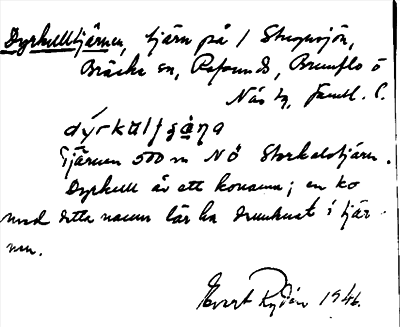 Dyrkulltjärnen, tjärn på / Stugusjön,
Bräcke sn, Refsunds, Brunflo o
Näs tg, Jämtl. l.
dýrkulțșạ̈ṇa
Tjärnen 500 m NÖ Storkalstjärn.
Dyrkull är ett konamn; en ko
med detta namn lär ha drunknat i tjär-
nen.
Evert Rydén 1946.